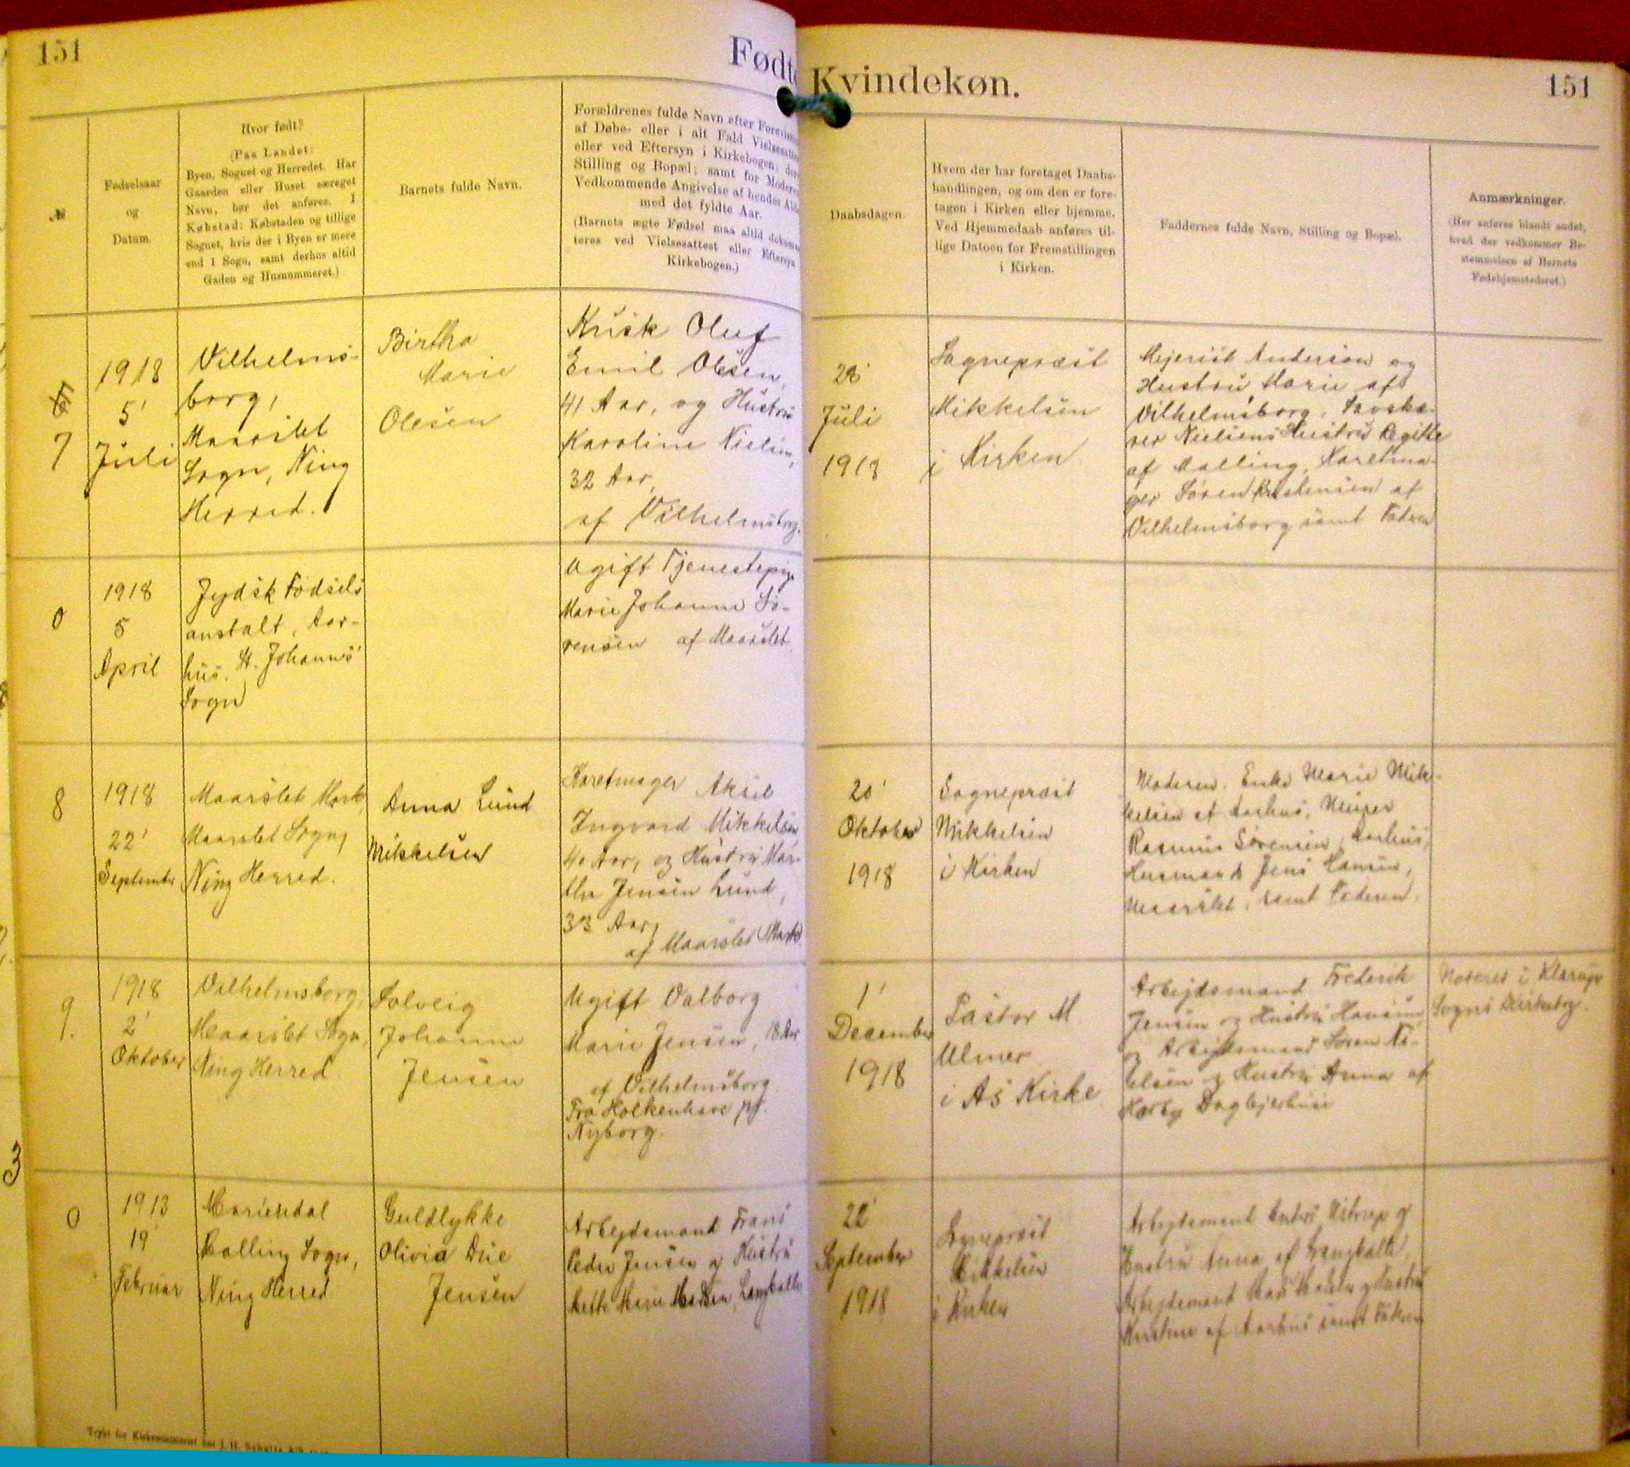 151
Fødte
Kvindekøn.
151
№
Fødselsaar
og
Datum.
Hvor født?
(Paa Landet:
Byen, Sognet og Herredet. Har
Gaarden eller Huset særeget
Navn, bør det anføres. I
Købstad: Købstaden og tillige
Sognet, hvis der i Byen er mere
end 1 Sogn, samt derhos altid
Gaden og Husnummeret.)
Barnets fulde Navn.
Forældrenes fulde Navn efter
af Døbe- eller i alt Fald
eller ved Eftersyn i Kirkebogen;
Stilling og Bopæl; samt for
Vedkommende Angivelse af hendes
med det fyldte Aar.
(Barnets ægte Fødsel maa altid
teres ved Vielsesattest eller Eftersyn
Kirkebogen.)
Daabsdagen.
Hvem der har foretaget Daabs-
handlingen, og om den er fore-
tagen i Kirken eller hjemme.
Ved Hjemmedaab anføres til-
lige Datoen for Fremstillingen
i Kirken.
Faddernes fulde Navn, Stilling og Bopæl.
Anmærkninger.
(Her anføres blandt andet,
hvad der vedkommer Be-
stemmelsen af Barnets
Fødehjemstedsret.)
7
1918
5'
Juli
Vilhelms-
borg,
Maarslet
Sogn, Ning
Herred.
Birtha
Marie
Olesen
Kusk Oluf
Emil Olesen,
41 Aar, og Hustru
Karoline Nielsen,
32 Aar,
af Vilhelmsborg.
28'
Juli
1918
Sognepræst
Mikkelsen
i Kirken
Mejerist Anderson og
Hustru Marie af
Vilhelmsborg,
Nielsens Hustru Regitze
af Malling, Karetma-
ger Søren Kristensen af
Vilhelmsborg samt Faderen
0
1918
5
April
Jydsk Fødsels
anstalt, Aar-
hus. St. Johannes'
Sogn
Ugift Tjenestepige
Marie Johanne Sø-
rensen af Maarslet
8
1918
22'
September
Maarslet Mark,
Maarslet Sogn,
Ning Herred.
Anna Lund
Mikkelsen
Karetmager Aksel
Ingvard Mikkelsen
40 Aar, og Hustru Mar-
tha Jensen Lund,
33 Aar,
af Maarslet Mark
20'
Oktober
1918
Sognepræst
Mikkelsen
i Kirken
Moderen, Enke Marie Mik-
kelsen af Aarhus, Murer
Rasmus Sørensen, Aarhus,
Husmand Jens Hansen,
Maarslet, samt Faderen.
9.
1918
2'
Oktober
Vilhelmsborg,
Maarslet Sogn,
Ning Herred.
Solveig
Johanne
Jensen
Ugift Valborg
Marie Jensen, 18 Aar
af Vilhelmsborg
Fra Holkenhavn pr.
Nyborg.
1'
December
1918
Pastor M
Ulmer
i As Kirke
Arbejdsmand Frederik
Jensen og Hustru Hansine
og Arbejdsmand Søren Ni-
elsen og Hustru Anna af
Noteret i Klarup
Sogns Kirkebog.
0
1913
19'
Februar
Mariendal
Malling Sogn,
Ning Herred
Guldlykke
Olivia Due
Jensen
Arbejdsmand Frans
Peder Jensen og Hustru
Mette Marie Madsen, Langballe
22'
September
1918
Sognepræst
Mikkelsen
i Kirken
Arbejdsmand Anders og
Hustru Anna af Langballe,
Arbejdsmand og Hustru
af Aarhus samt Faderen
3
Trykt for Kirkeministeriet hos J. H. Schultz A/S